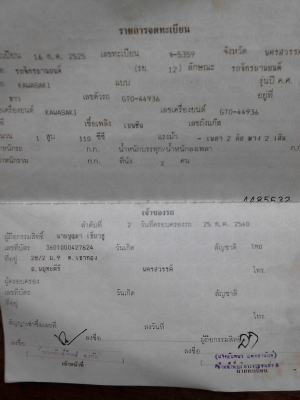 รายการจดทะเบียน
ทะเบียน 16 ก.ค. 2525 เลขทะเบียน 5359 จังหวัด นครสวรรค์
รถจักรยานยนต์ (รย. 12) ลักษณะ รถจักรยานยนต์
KAWASAKI แบบ รุ่นปี ค.ศ.
ขาว เลขตัวรถ G7O-44936 อยู่ที่
เครื่องยนต์ KAWASAKI เลขเครื่องยนต์ G7O-44936
เชื้อเพลิง เบนซิน เลขถังแก๊ส
1 สูบ 110 ซีซี แรงม้า เพลา 2 ล้อ ยาง 2 เส้น
น้ำหนักรถ ก.ก. น้ำหนักบรรทุก/น้ำหนักลงเพลา ก.ก.
น้ำหนักรวม ก.ก. ที่นั่ง 2 คน
4485532
เจ้าของรถ
ลำดับที่ 2 วันที่ครอบครองรถ 25 2540
ผู้ถือกรรมสิทธิ์
เลขที่บัตร 3601000427624 วันเกิด สัญชาติ ไทย
ที่อยู่ 28/2 ม.9 ต.เขาทอง
อ.พยุหะคีรี นครสวรรค์ โทร.
ผู้ครอบครอง
เลขที่บัตร วันเกิด สัญชาติ
ที่อยู่
โทร.
สัญญาเช่าซื้อเลขที่ ลงวันที่
ลงชื่อ ลงชื่อ ผู้ถือกรรมสิทธิ์
เจ้าหน้าที่ นายทะเบียน